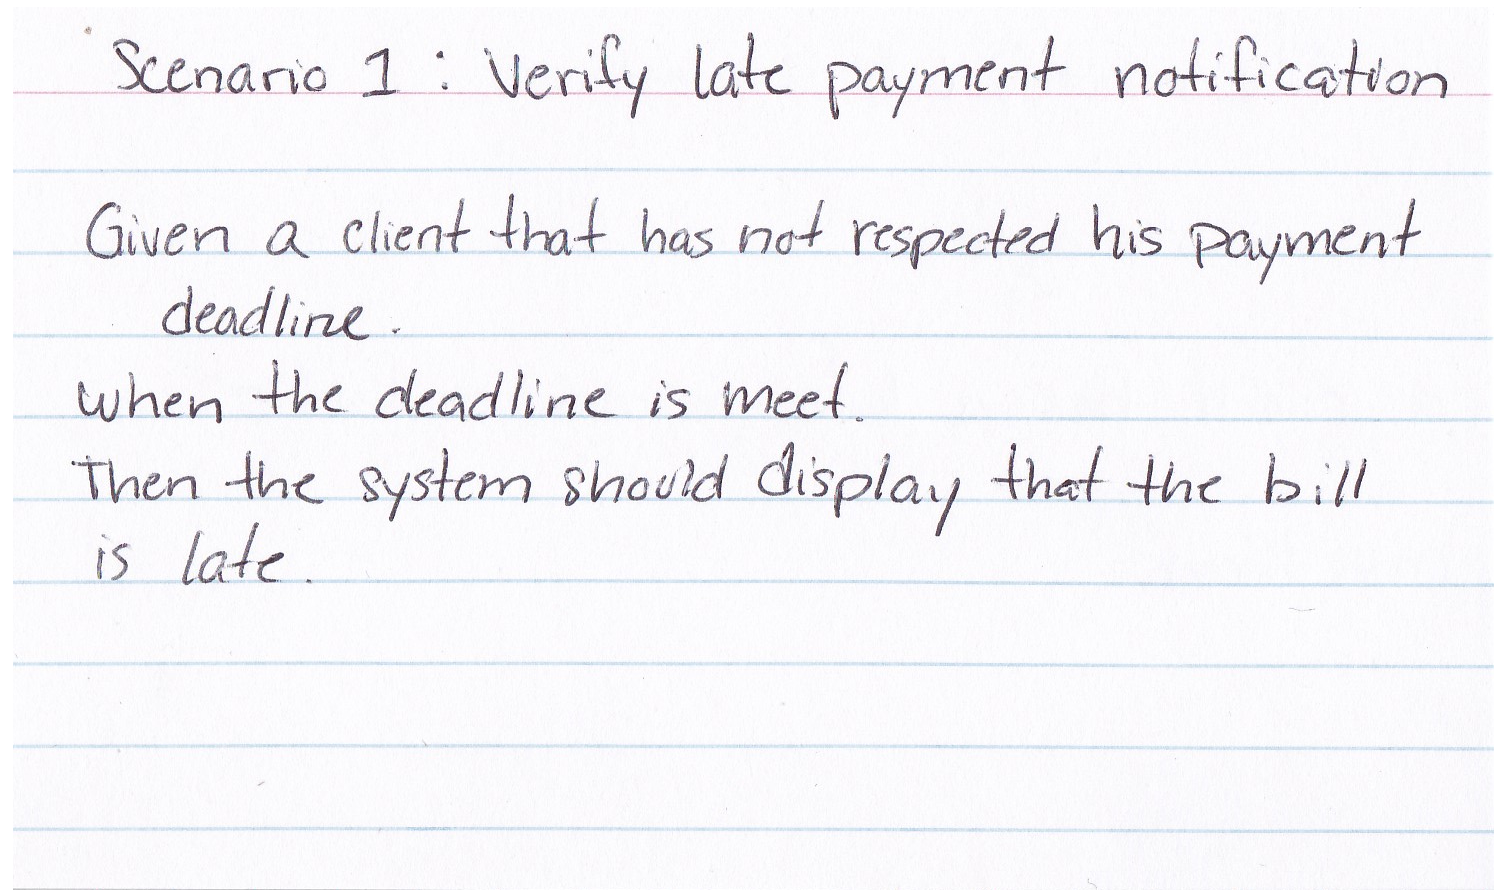 Scenario 1 : Verify late payment notification
Given a client that has not respected his payment
deadline.
When the deadline is meet.
Then the system should display that the bill
is late.